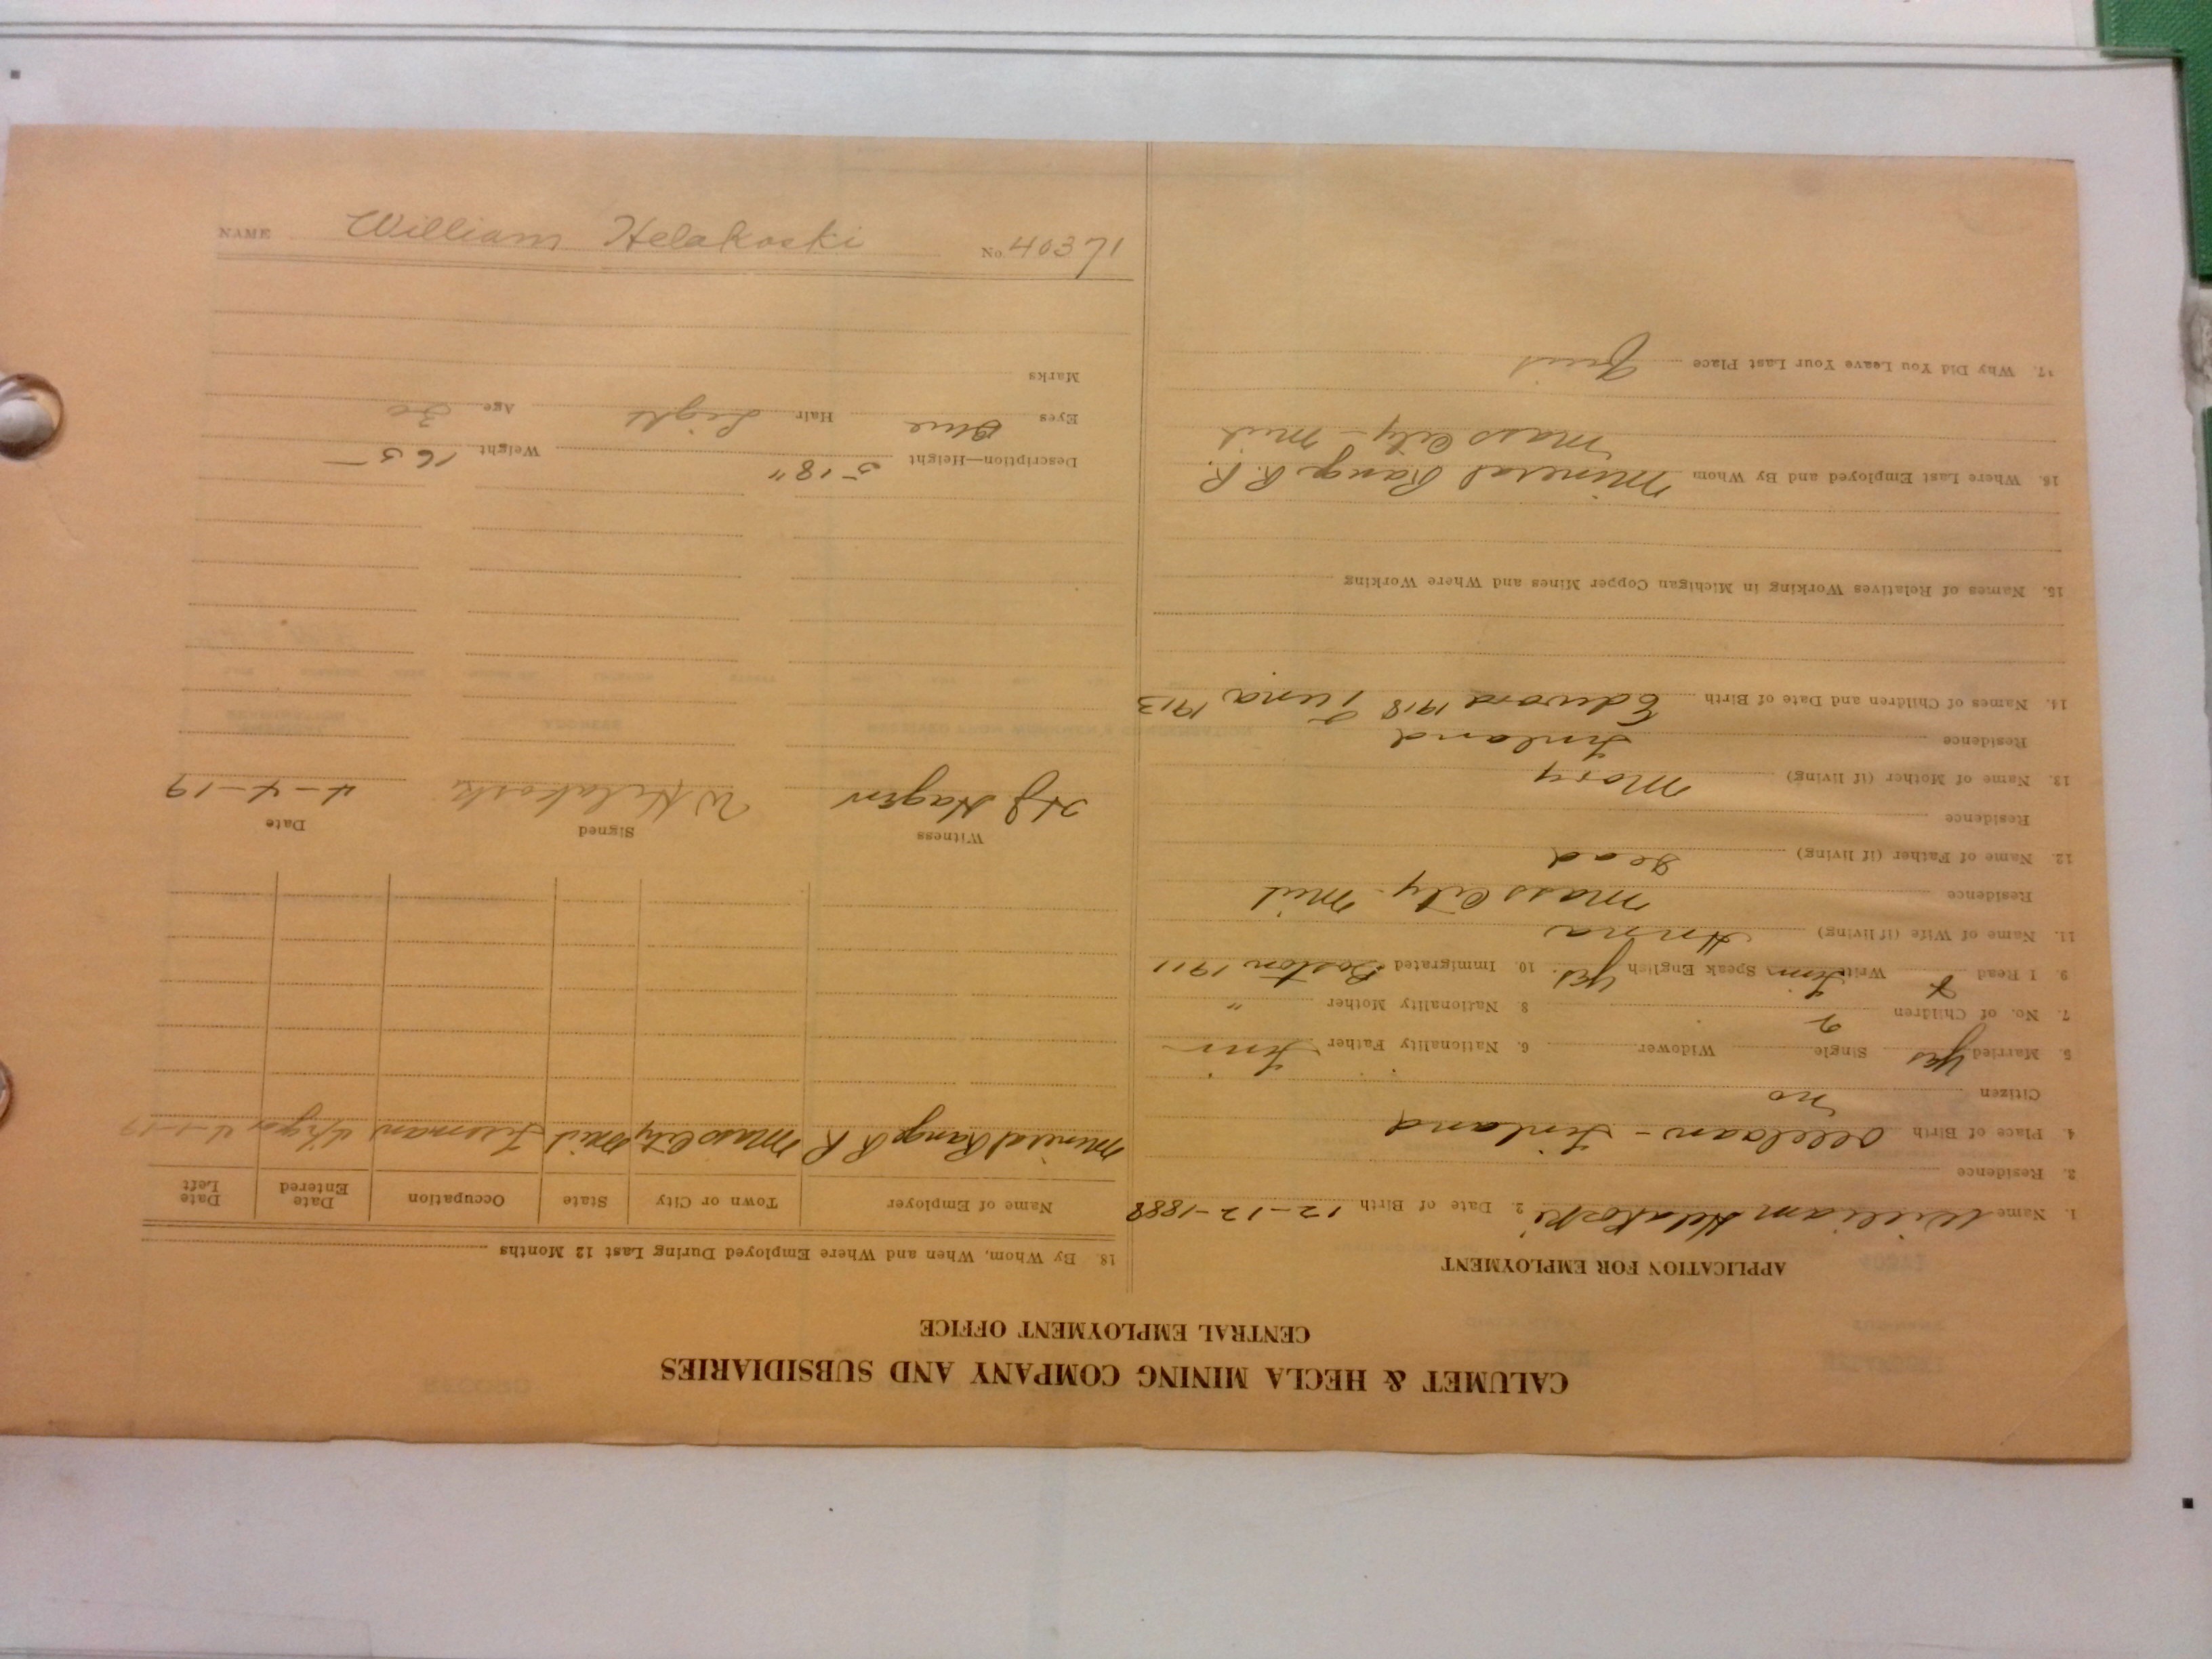 CALUMET & HECLA MINING COMPANY AND SUBSIDIARIES
CENTRAL EMPLOYMENT OFFICE
APPLICATION FOR EMPLOYMENT
1. Name William Helakoski 2. Date of Birth 12-12-1888
3. Residence
4. Place of Birth - Finland
Citizen no
5. Married yes Single Widower 6. Nationality Father Finn
7. No. of Children 2 8 Nationality Mother "
9. I Read x Write Finn Speak English Yes 10. Immigrated Boston 1911
11. Name of Wife (if living) Anna
Residence Mass City - Mich
12. Name of Father (if living) Dead
Residence
13. Name of Mother (if living) Mary
Residence Finland
14. Names of Children and Date of Birth Edward 1918 1913
15. Names of Relatives Working in Michigan Copper Mines and Where Working
16. Where Last Employed and By Whom Mineral Range R.R.
Mass City - Mich
17. Why Did You Leave Your Last Place Quit
18. By Whom, When and Where Employed During Last 12 Months
Name of Employer Town or City State Occupation Date Entered Date Left
Mineral Range R R Mass City Mich 4-1-19
Witness Signed Date
H J Hagen W Helakoski 4-4-19
Description—Height 5-8" Weight 165
Eyes Blue Hair Light Age 30
Marks
NAME William Helakoski No. 40371